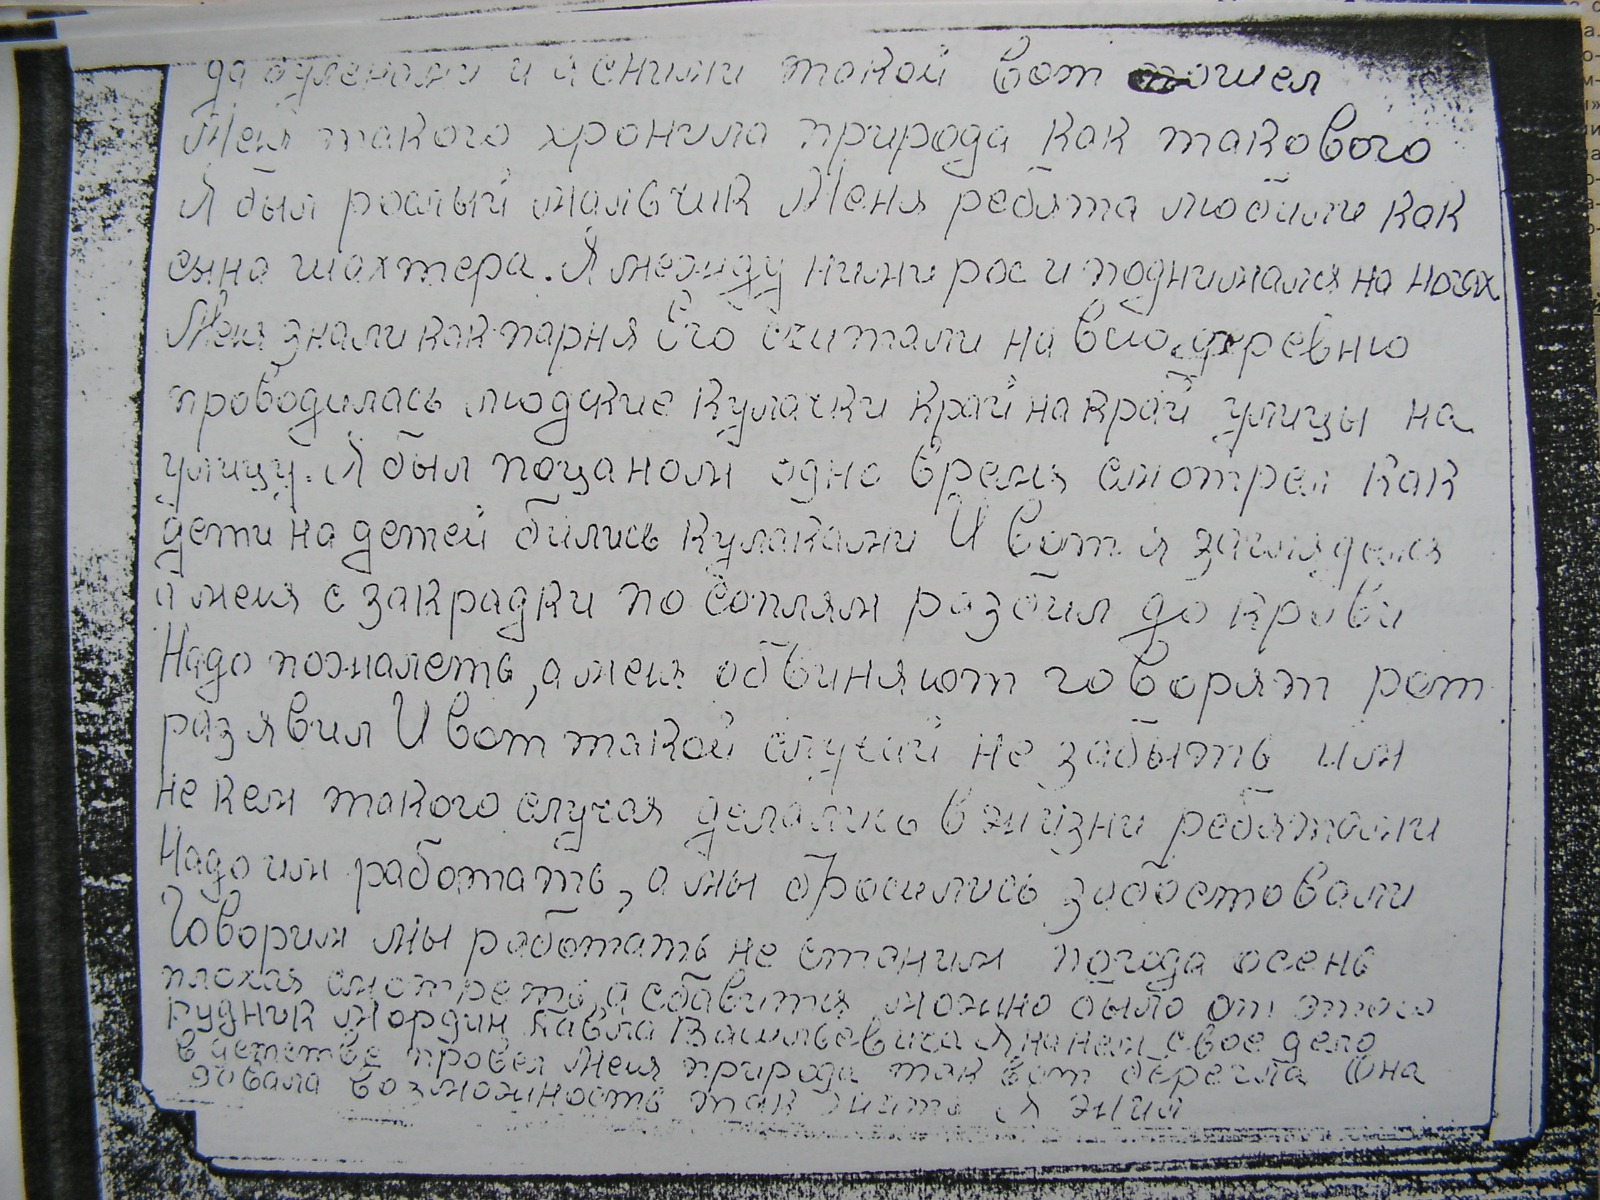 такой вот пошел
Мея такого хронила природа как такового
Я был рослый мальчик Меня ребята любили как
сына шахтера. Я между ними рос и поднимался на ногах
Мея знали как парня Его считали на всю деревню
проводилась людские кулачки край на край улицы на
улицу. Я был поцаном одно время смотрел как
дети на детей бились кулаками И вот я загляделся
а мея с закрадки по соплям разбил до крови
Надо пожалеть, а мея обвиняют говорят рот
разявил И вот такой случай не забыть им
не кем такого случая делались в жизни ребятами
Надо им работать, а мы бросились забастовали
Говорим мы работать не станим погода осень
плохая смотреть, а сбавится можно было от этого
рудник Мордин Павла Васильевича Я на нем свое дело
в детстве провел Мея природа так вот берегла Она
довала возможность так жить Я жил